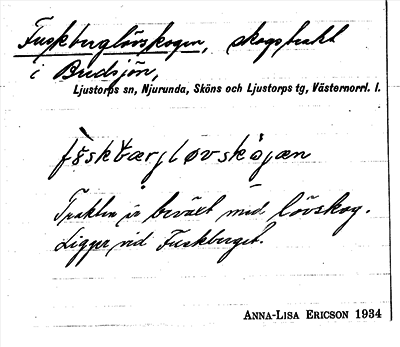 Fuskberglövskogen, skogstrakt
i Budsjön,
Ljustorps sn, Njurunda, Sköns och Ljustorps tg, Västernorrl. l.
Trakten är beväxt med lövskog.
Ligger vid Fuskberget.
ANNA-LISA ERICSON 1934